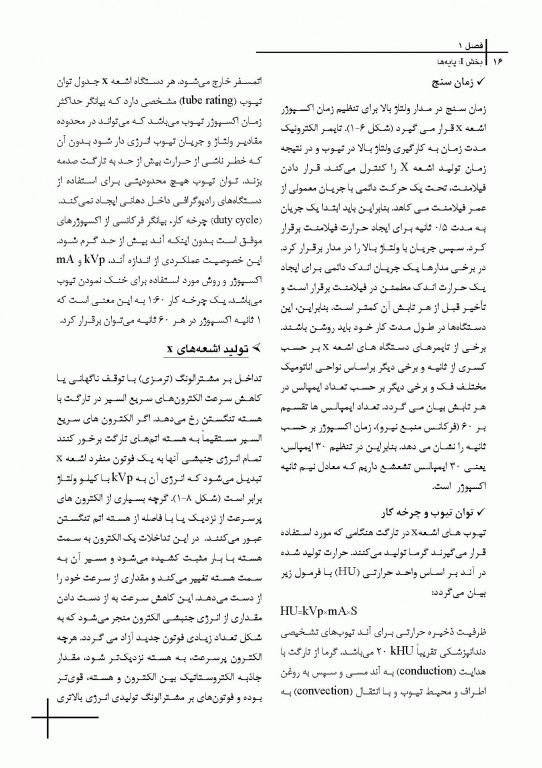 فصل ۱
۱۶ بخش I: پایه‌ها
✓ زمان سنج
زمان سنج در مدار ولتاژ بالا برای تنظیم زمان اکسپوژر
اشعه x قرار می گیرد (شکل ۶-۱). تایمر الکترونیک
مدت زمان به کارگیری ولتاژ بالا در تیوب و در نتیجه
زمان تولید اشعه X را کنترل می‌کند. قرار دادن
فیلامنت، تحت یک حرکت دائمی با جریان معمولی از
عمر فیلامنت می کاهد. بنابراین باید ابتدا یک جریان
به مدت ۰/۵ ثانیه برای ایجاد حرارت فیلامنت برقرار
کرد. سپس جریان با ولتاژ بالا را در مدار برقرار کرد.
در برخی مدارها یک جریان اندک دائمی برای ایجاد
یک حرارت اندک مطمئن در فیلامنت برقرار است و
تأخیر قبل از هر تابش آن کمتر است. بنابراین، این
دستگاه‌ها در طول مدت کار خود باید روشن باشند.
برخی از تایمرهای دستگاه های اشعه x بر حسب
کسری از ثانیه و برخی دیگر براساس نواحی اناتومیک
مختلف فک و برخی دیگر بر حسب تعداد ایمپالس در
هر تابش بیان می گردد. تعداد ایمپالس ها تقسیم
بر ۶۰ (فرکانس منبع نیرو)، زمان اکسپوژر بر حسب
ثانیه را نشان می دهد. بنابراین در تنظیم ۳۰ ایمپالس،
یعنی ۳۰ ایمپالس تشعشع داریم که معادل نیم ثانیه
اکسپوژر است.
✓ توان تیوب و چرخه کار
تیوب های اشعه x در تارگت هنگامی که مورد استفاده
قرار می‌گیرند گرما تولید می‌کنند. حرارت تولید شده
در آند بر اساس واحد حرارتی (HU) با فرمول زیر
بیان می‌گردد:
HU=kVp×mA×S
ظرفیت ذخیره حرارتی برای آند تیوب‌های تشخیصی
دندانپزشکی تقریباً ۲۰ kHU می‌باشد. گرما از تارگت با
هدایت (conduction) به آند مسی و سپس به روغن
اطراف و محیط تیوب و با انتقال (convection) به
اتمسفر خارج می‌شود. هر دستگاه اشعه x جدول توان
تیوب (tube rating) مشخصی دارد که بیانگر حداکثر
زمان اکسپوژر تیوب می‌باشد که می‌تواند در محدوده
مقادیر ولتاژ و جریان تیوب انرژی دار شود بدون آن
که خطر ناشی از حرارت بیش از حد به تارگت صدمه
بزند. توان تیوب هیچ محدودیتی برای استفاده از
دستگاه‌های رادیوگرافی داخل دهانی ایجاد نمی‌کند.
(duty cycle) چرخه کار، بیانگر فرکانسی از اکسپوژرهای
موفق است بدون اینکه آند بیش از حد گرم شود.
این خصوصیت عملکردی از اندازه آند، kVp و mA
اکسپوژر و روش مورد استفاده برای خنک نمودن تیوب
می‌باشد. یک چرخه کار ۱:۶۰ به این معنی است که
۱ ثانیه اکسپوژر در هر ۶۰ ثانیه می‌توان برقرار کرد.
➢ تولید اشعه‌های x
تداخل بر مشترالونگ (ترمزی) با توقف ناگهانی یا
کاهش سرعت الکترون‌های سریع السیر در تارگت با
هسته تنگستن رخ می‌دهد. اگر الکترون های سریع
السیر مستقیماً به هسته اتم‌های تارگت برخورد کنند
تمام انرژی جنبشی آنها به یک فوتون منفرد اشعه x
تبدیل می‌شود که انرژی آن به kVp با کیلو ولتاژ
برابر است (شکل ۸-۱). گرچه بسیاری از الکترون های
پرسرعت از نزدیک یا با فاصله از هسته اتم تنگستن
عبور می‌کنند. در این تداخلات یک الکترون به سمت
هسته با بار مثبت کشیده می‌شود و مسیر آن به
سمت هسته تغییر می‌کند و مقداری از سرعت خود را
از دست می‌دهد. این کاهش سرعت به از دست دادن
مقداری از انرژی جنبشی الکترون منجر می‌شود که به
شکل تعداد زیادی فوتون جدید آزاد می گردد. هرچه
الکترون پرسرعت، به هسته نزدیک‌تر شود، مقدار
جاذبه الکتروستاتیک بین الکترون و هسته، قوی‌تر
بوده و فوتون‌های بر مشترالونگ تولیدی انرژی بالاتری